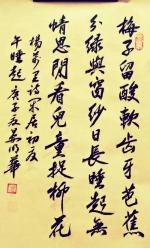 梅子留酸軟齒牙芭蕉
分綠與窗紗日長睡起無
情思閒看兒童捉柳花
楊萬里詩閒居初夏
午睡起庚子夏華